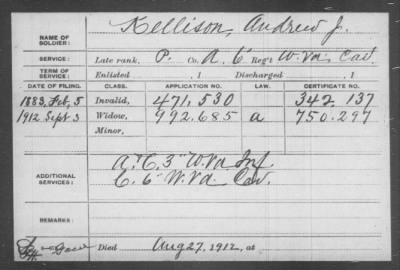 NAME OF SOLDIER: Kellison, Andrew J.
SERVICE: Late rank, P. Co. A, 6 Reg't W. Va. Cav.
TERM OF SERVICE: Enlisted , 1 Discharged , 1
DATE OF FILING. CLASS. APPLICATION NO. LAW. CERTIFICATE NO.
1883, Feb, 5 Invalid, 471,530 342,137
1912, Sept 3 Widow, 992,685 a 750,297
Minor,
ADDITIONAL SERVICES: A. & C, 3" W. Va Inf
C. 6" W. Va. Cav.
REMARKS:
Died Aug 27, 1912, at